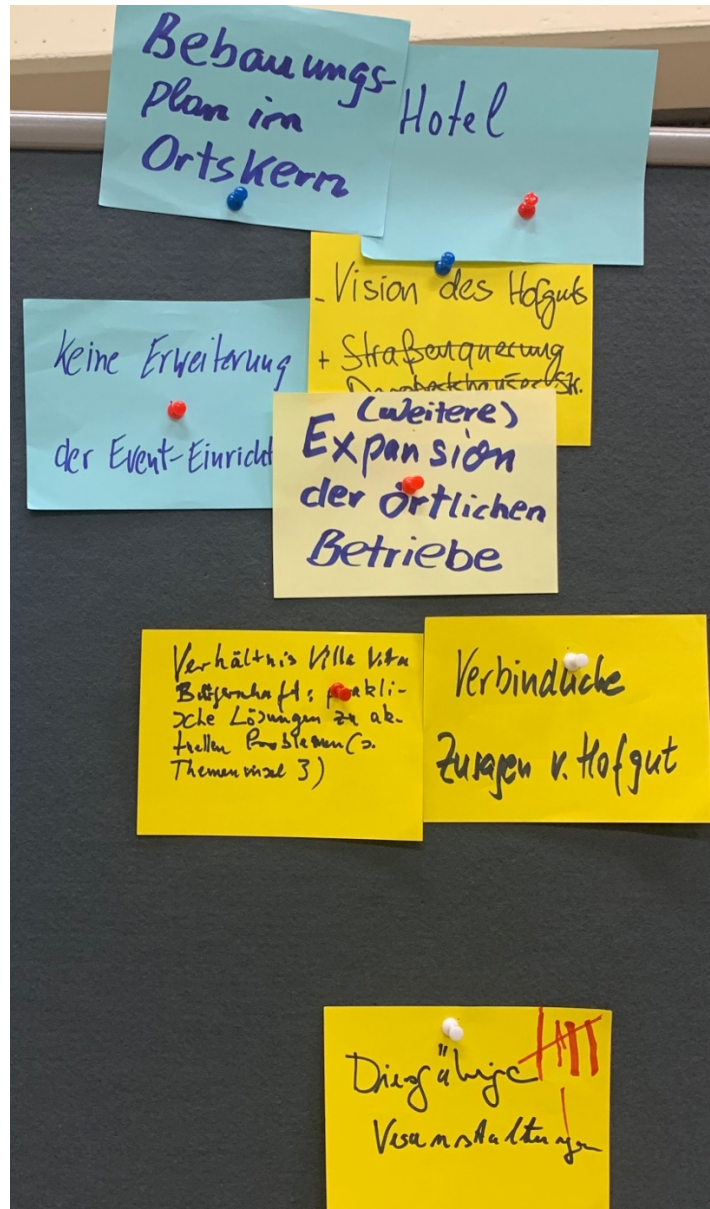 Bebauungs-
plan im
Ortskern
Hotel
- Vision des Hofguts
+ Straßenquerung
Str.
keine Erweiterung
der Event-Einricht
(weitere)
Expansion
der örtlichen
Betriebe
Verhältnis Villa Vita
prakli-
sche Lösungen zu ak-
tuellen Problemen (s.
Themeninsel 3)
Verbindliche
Zusagen v. Hofgut
Veranstaltungen